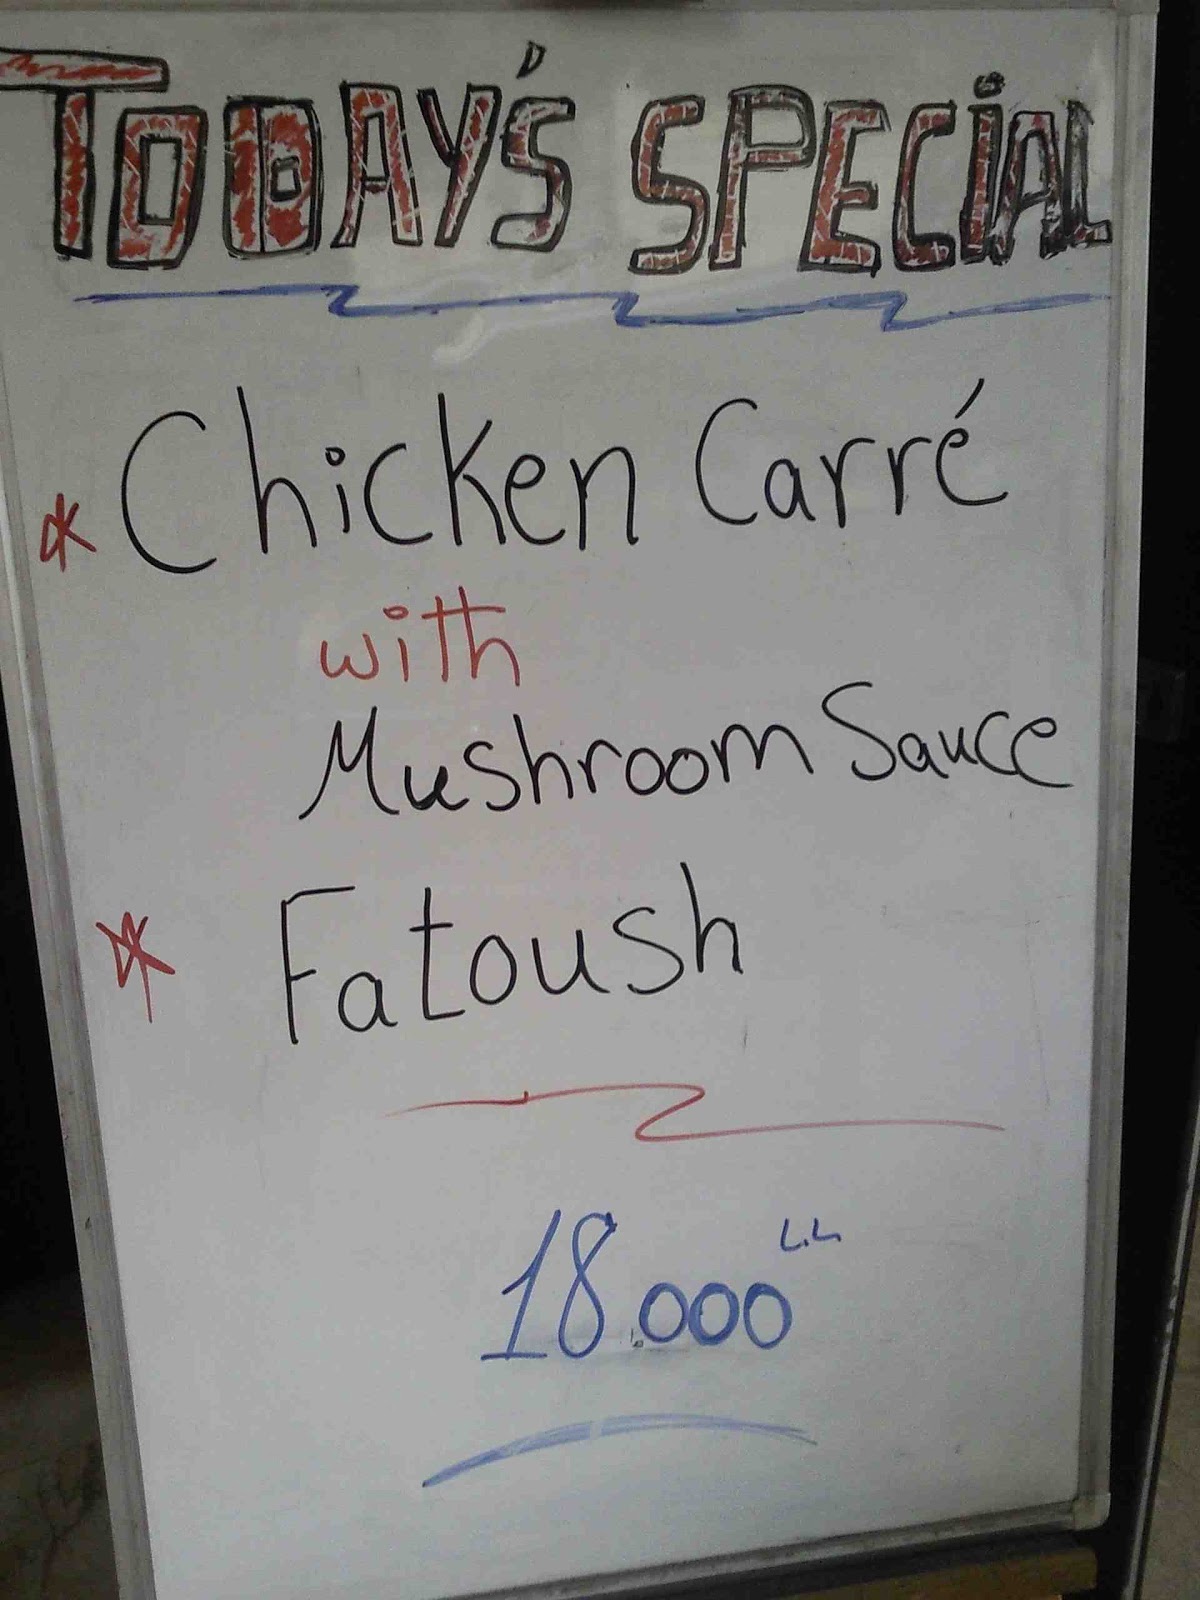 TODAY'S SPECIAL
* Chicken Carré
with
Mushroom Sauce
* Fatoush
18.000 L.L